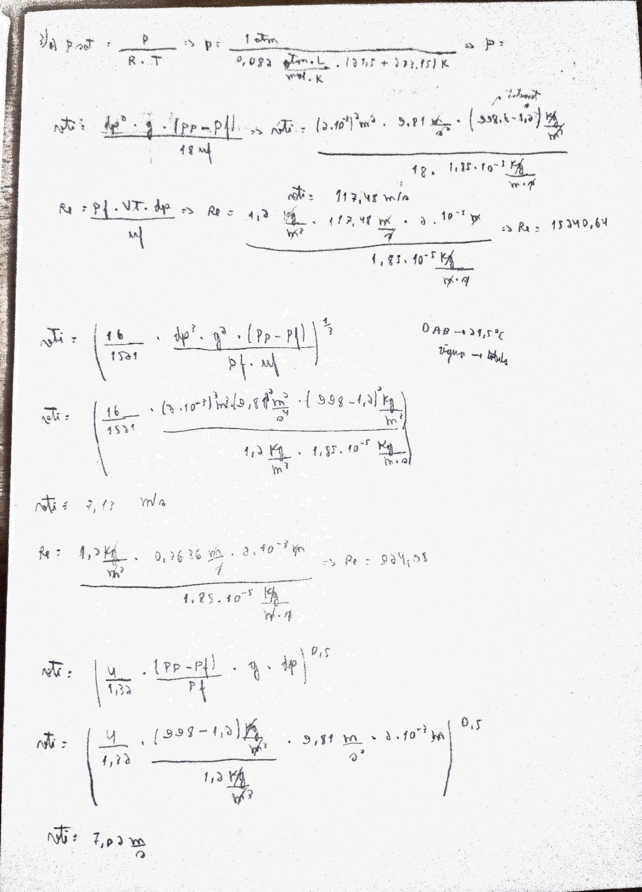 3) a) ρ sat = P / (R . T) => ρ = 1 atm / (0,082 atm.L/mol.K . (21,5 + 273,15) K) => ρ =
vti = dp² . g . (ρp - ρf) / 18 μf => vti = (2.10⁻³)² m² . 9,81 m/s² . (998,6 - 1,2) kg/m³ / 18 . 1,85.10⁻⁵ kg/m.s
vti = 117,48 m/s
Re = ρf . VT . dp / μf => Re = 1,2 kg/m³ . 117,48 m/s . 2.10⁻³ m / 1,85.10⁻⁵ kg/m.s => Re = 15240,64
vti = (16/1521 . dp³ . g² . (ρp - ρf) / ρf . μf)^1/3
DAB → 21,5°C
vti = (16/1521 . (2.10⁻³)³ m³ . (9,81)² m²/s⁴ . (998 - 1,2)² kg/m³ / 1,2 kg/m³ . 1,85.10⁻⁵ kg/m.s)
vti = 7,13 m/s
Re = 1,2 kg/m³ . 0,3636 m/s . 2.10⁻³ m / 1,85.10⁻⁵ kg/m.s => Re = 924,98
vti = (4/1,32 . (ρp - ρf)/ρf . g . dp)^0,5
vti = (4/1,32 . (998 - 1,2) kg/m³ / 1,2 kg/m³ . 9,81 m/s² . 2.10⁻³ m)^0,5
vti = 7,02 m/s